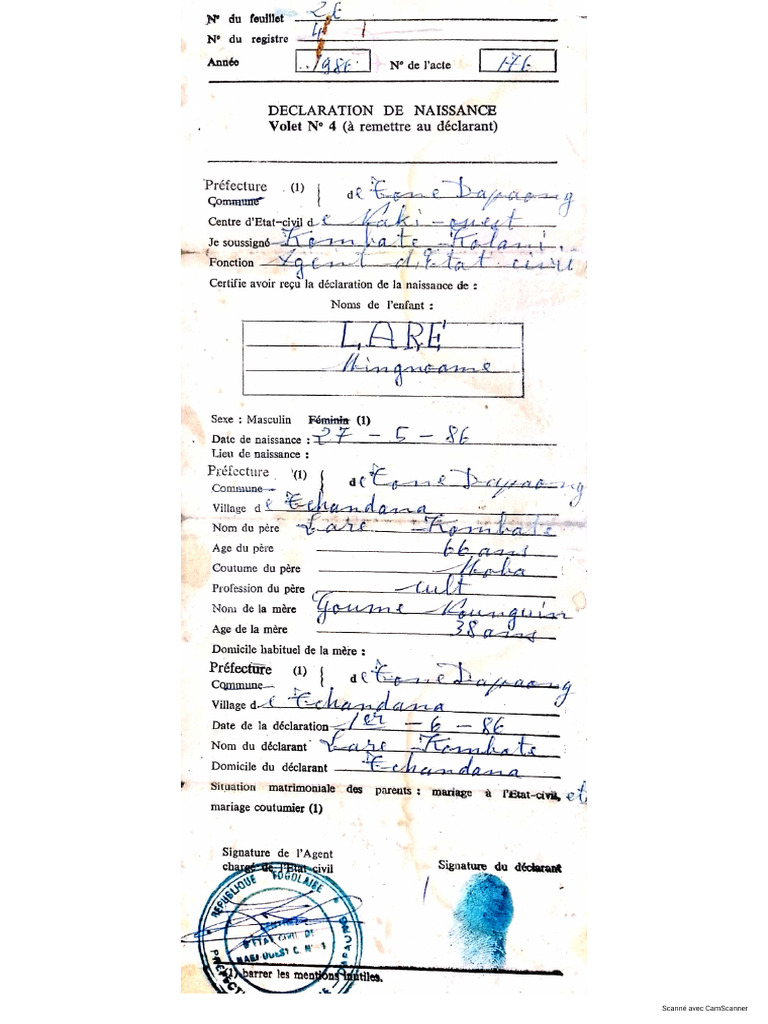 N° du feuillet 26
N° du registre 4
Année 1986 N° de l'acte 176
DECLARATION DE NAISSANCE
Volet N° 4 (à remettre au déclarant)
Préfecture (1) de Tone Dapaong
Commune
Centre d'Etat-civil de Naki-ouest
Je soussigné Kombate Kolani
Fonction Agent d'Etat civil
Certifie avoir reçu la déclaration de la naissance de :
Noms de l'enfant :
LARE
Mingnoame
Sexe : Masculin Féminin (1)
Date de naissance : 27 - 5 - 86
Lieu de naissance :
Préfecture (1) de Tone Dapaong
Commune
Village de Tchandana
Nom du père Lare Kombate
Age du père 66 ans
Coutume du père Moba
Profession du père cult
Nom de la mère Goume Kounguin
Age de la mère 38 ans
Domicile habituel de la mère :
Préfecture (1) de Tone Dapaong
Commune
Village de Tchandana
Date de la déclaration 1er - 6 - 86
Nom du déclarant Lare Kombate
Domicile du déclarant Tchandana
Situation matrimoniale des parents : mariage à l'Etat-civil, et
mariage coutumier (1)
Signature de l'Agent
chargé de l'Etat civil
Signature du déclarant
REPUBLIQUE TOGOLAISE
D'ETAT CIVIL DE
NAKI OUEST C. N° 1
(1) barrer les mentions inutiles.
Scanné avec CamScanner